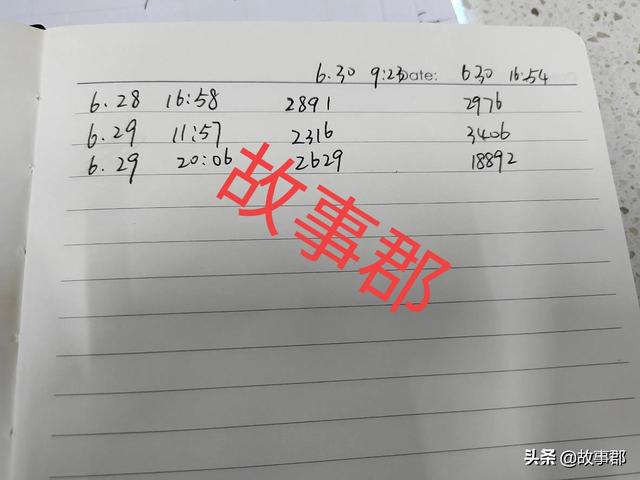 6.30 9:23 Date: 6.30 16:54
6.28 16:58 2891 2976
6.29 11:57 2316 3406
6.29 20:06 2629 18892
故事郡
头条 @故事郡